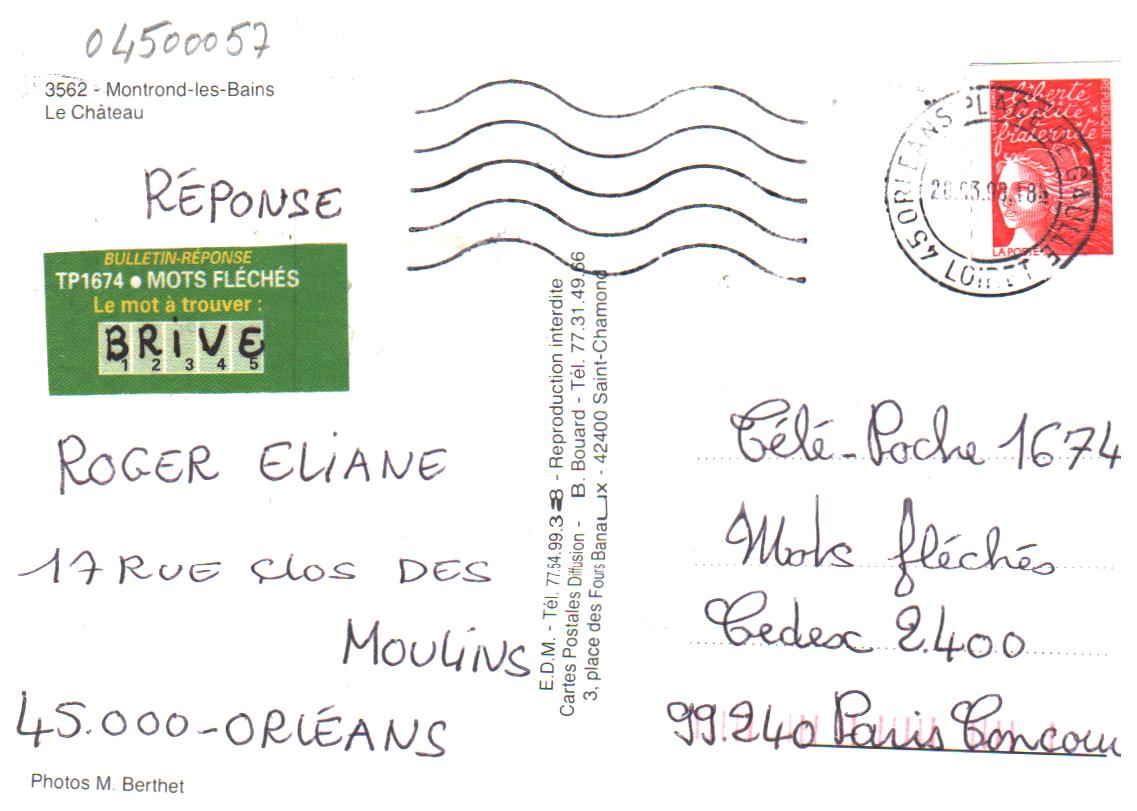 04500057
3562 - Montrond-les-Bains
Le Château
RÉPONSE
BULLETIN-RÉPONSE
TP1674 ● MOTS FLÉCHÉS
Le mot à trouver :
BRIVE
1 2 3 4 5
ROGER ELIANE
17 RUE CLOS DES
MOULINS
45.000-ORLÉANS
Photos M. Berthet
E.D.M. - Tél. 77.54.99.38 - Reproduction interdite
Cartes Postales Diffusion - B. Bouard - Tél. 77.31.49.66
3, place des Fours Banaux - 42400 Saint-Chamond
liberté
égalité
fraternité
RÉPUBLIQUE FRANÇAISE
LA POSTE
45 ORLEANS PLACE DE GAULLE
LOIRET
Télé-Poche 1674
Mots fléchés
Cedex 2.400
99.240 Paris Concour